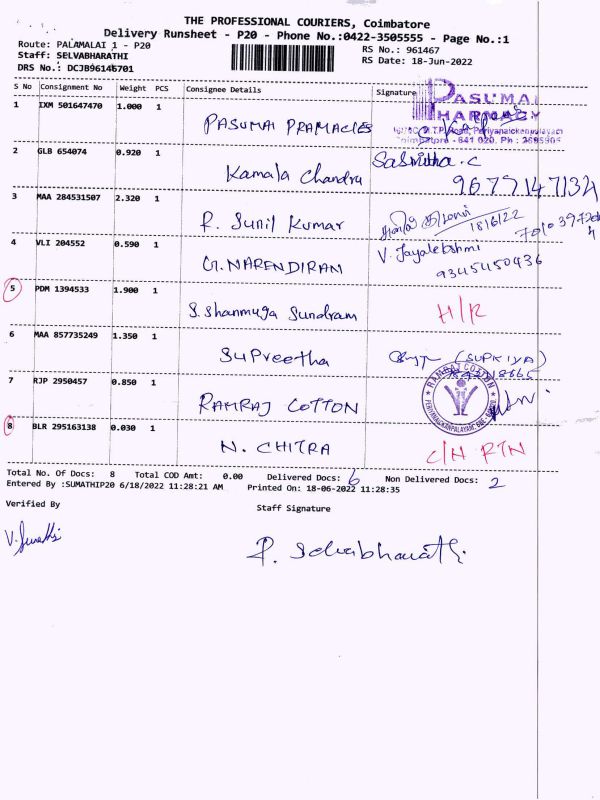 THE PROFESSIONAL COURIERS, Coimbatore
Delivery Runsheet - P20 - Phone No.:0422-3505555 - Page No.:1
Route: PALAMALAI 1 - P20
RS No.: 961467
Staff: SELVABHARATHI
RS Date: 18-Jun-2022
DRS No.: DCJB96146701
S No Consignment No Weight PCS Consignee Details Signature
1 IXM 501647470 1.000 1 PASUMAI PRAMACIES
PASUMAI
PHARMACY
Coimbatore - 641 020. Ph : 2685905
2 GLB 654074 0.920 1 Kamala Chandru Sasmitha.C
9677147134
3 MAA 284531507 2.320 1 R. Sunil Kumar 18/6/22
4 VLI 204552 0.590 1 G.NARENDIRAN V. Jayalekshmi
9345450436
5 PDM 1394533 1.900 1 S.Shanmuga Sundram H/R
6 MAA 857735249 1.350 1 SuPreetha (SUPRIYA)
7 RJP 2950457 0.850 1 RAMRAJ COTTON
RAMRAJ COTTON
8 BLR 295163138 0.030 1 N. CHITRA C/H RTN
Total No. Of Docs: 8 Total COD Amt: 0.00 Delivered Docs: 6 Non Delivered Docs: 2
Entered By :SUMATHIP20 6/18/2022 11:28:21 AM Printed On: 18-06-2022 11:28:35
Verified By
Staff Signature
P. Selvabharathi